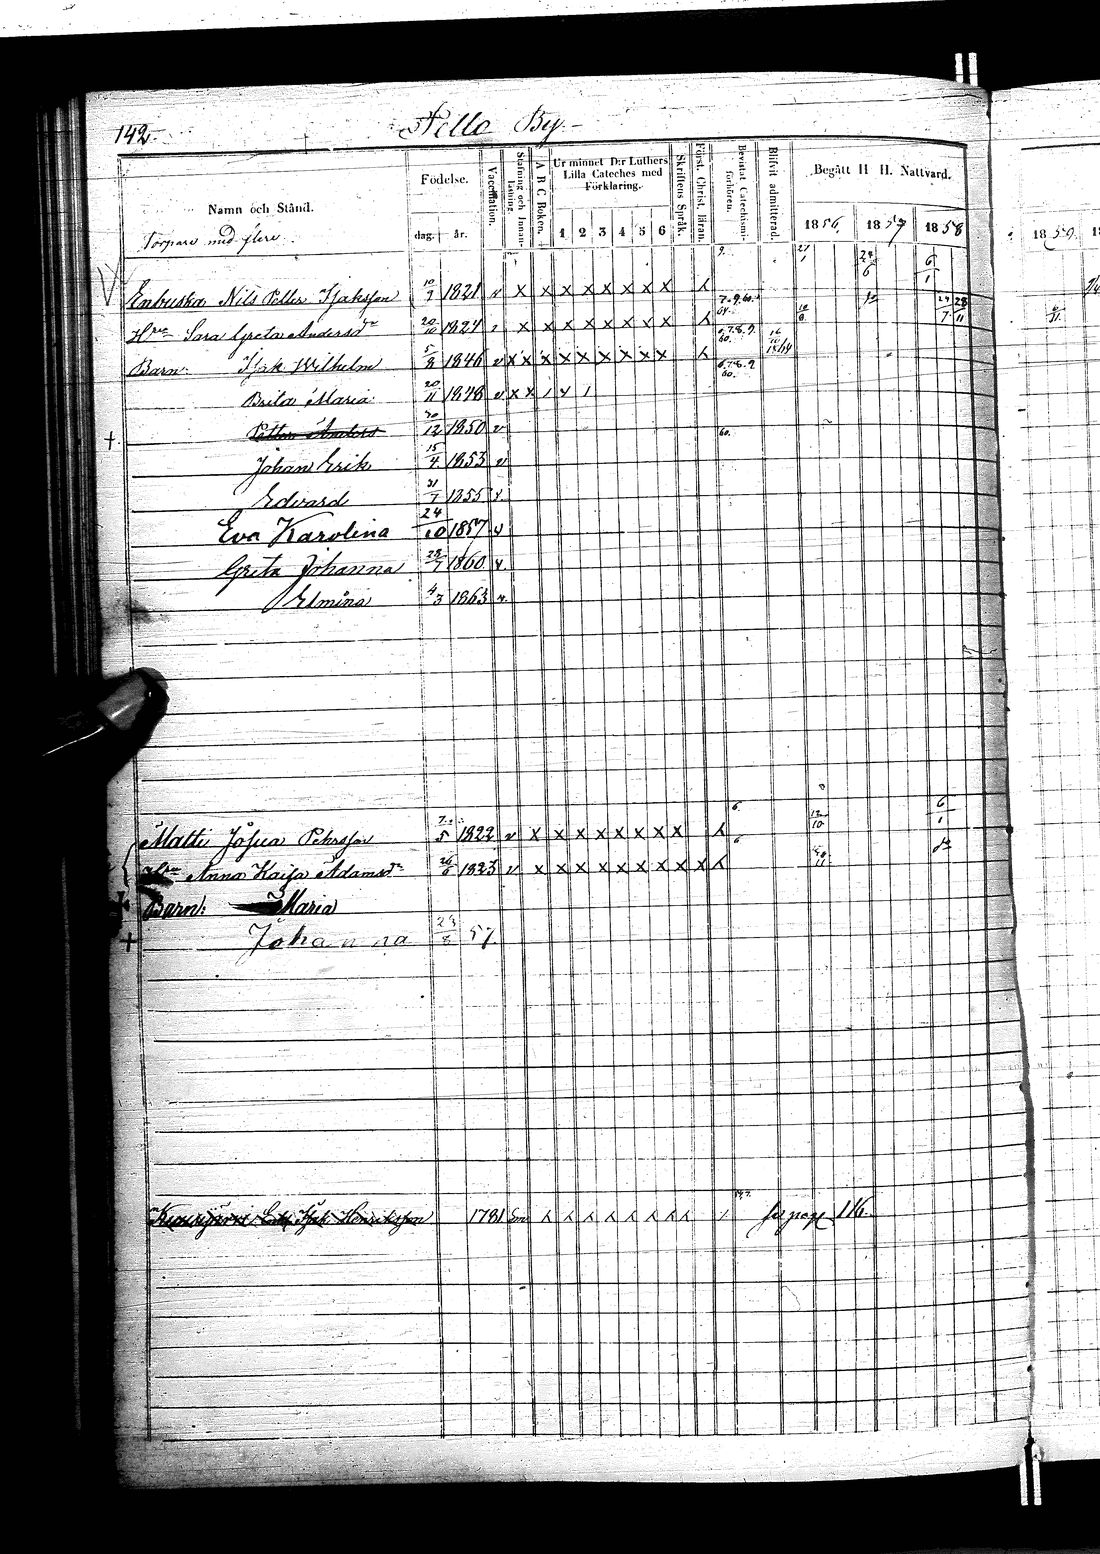 142.
Pello By.
Namn och Stånd.
Torpare med flere.
Födelse.
dag. år.
Vaccination.
Stafning och Innanläsning.
A B C Boken.
Ur minnet D:r Luthers Lilla Cateches med Förklaring.
1 2 3 4 5 6
Skriftens Språk.
Först. Christ. läran.
Bevistat Catechismiförhören.
Blifvit admitterad.
Begått H H. Nattvard.
1856. 1857 1858
1859.
Enbuska Nils Petter Isaksson 10/7 1821 v x x x x x x x x
Hru Sara Greta Andersdr 20/10 1824 x x x x x x x x
Barn: Isak Wilhelm 5/8 1846 v x x x x x x x x x
Brita Maria 20/11 1848 v x x
Petter Anders 30/12 1850 v 60.
Johan Erik 15/4 1853 v
Edvard 31/7 1855 v
Eva Karolina 24/10 1857 v
Greta Johanna 28/7 1860 v.
Elmina 4/3 1863 v.
Matti Josua Pehrsson 7/5 1822 v x x x x x x x x
Hru Anna Kaisa Adamsdr 26/6 1823 v x x x x x x x x x
Barn: Maria
Johanna 23/8 57.
Isak Henriksson 1781 se page 116.